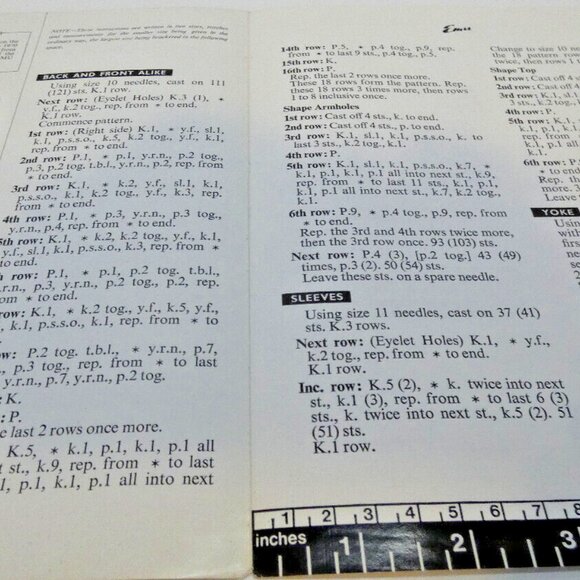 on the
1970
from
the
NOTE—These instructions are written in two sizes, stitches
and measurements for the smaller size being given in the
ordinary way, the larger size being bracketed in the following
space.
BACK AND FRONT ALIKE
Using size 10 needles, cast on 111
(121) sts. K.1 row.
Next row: (Eyelet Holes) K.3 (1), * y.f.,
y.f., k.2 tog., rep. from * to end.
K.1 row.
Commence pattern.
1st Row: (Right side) K.1, * y.f., sl.1,
k.1, p.s.s.o., k.5, k.2 tog., y.f., k.1,
rep. from * to end.
2nd row: P.1, * p.1, y.r.n., p.2 tog.,
p.3, p.2 tog. t.b.l., y.r.n., p.2, rep. from
* to end.
3rd row: K.1, * k.2, y.f., sl.1, k.1,
p.s.s.o., k.1, k.2 tog., y.f., k.3, rep.
from * to end.
4th row: P.1, * p.3, y.r.n., p.3 tog.,
y.r.n., p.4, rep. from * to end.
5th row: K.1, * k.2, k.2 tog., y.f., k.1,
y.f., sl.1, k.1, p.s.s.o., k.3, rep. from
* to end.
row: P.1, * p.1, p.2 tog. t.b.l.,
y.r.n., p.3, y.r.n., p.2 tog., p.2, rep.
from * to end.
K.1, * k.2 tog., y.f., k.5, y.f.,
k.1, p.s.s.o., k.1, rep. from * to
row: P.2 tog. t.b.l., * y.r.n., p.7,
p.3 tog., rep. from * to last
y.r.n., p.7, y.r.n., p.2 tog.
: K.
: P.
the last 2 rows once more.
K.5, * k.1, p.1, k.1, p.1 all
st., k.9, rep. from * to last
1, p.1, k.1, p.1 all into next
Emu
14th row: P.5, * p.4 tog., p.9, rep.
from * to last 9 sts., p.4 tog., p.5.
15th row: K.
16th row: P.
Rep. the last 2 rows once more.
These 18 rows form the pattern. Rep.
these 18 rows 3 times more, then rows
1 to 8 inclusive once.
Shape Armholes
1st row: Cast off 4 sts., k. to end.
2nd row: Cast off 4 sts., p. to end.
3rd row: K.1, sl.1, k.1, p.s.s.o., k. to
last 3 sts., k.2 tog., k.1.
4th row: P.
5th row: K.1, sl.1, k.1, p.s.s.o., k.7, *
k.1, p.1, k.1, p.1 all into next st., k.9,
rep. from * to last 11 sts., k.1, p.1,
k.1, p.1 all into next st., k.7, k.2 tog.,
k.1.
6th row: P.9, * p.4 tog., p.9, rep. from
* to end.
Rep. the 3rd and 4th rows twice more,
then the 3rd row once. 93 (103) sts.
Next row: P.4 (3), [p.2 tog.] 43 (49)
times, p.3 (2). 50 (54) sts.
Leave these sts. on a spare needle.
SLEEVES
Using size 11 needles, cast on 37 (41)
sts. K.3 rows.
Next row: (Eyelet Holes) K.1, * y.f.,
k.2 tog., rep. from * to end.
K.1 row.
Inc. row: K.5 (2), * k. twice into next
st., k.1 (3), rep. from * to last 6 (3)
sts., k. twice into next st., k.5 (2). 51
(51) sts.
K.1 row.
Change to size 10
the 18 pattern row
twice, then rows 1 t
Shape Top
1st row: Cast off 4
2nd row: Cast off 4
3rd row: K.1, sl.1,
3 sts., k.2 tog., k
4th row: P.
5th row: K.1,
k.1, p.1, k.1,
rep. from *
p.1, k.1, p.
2 tog., k.1
6th row: P.
* to end
Rep. the
more, t
Leave
YOKE
Usin
with
firs
nee
1 2 3 4 5 6 7 8
inches 1 2 3